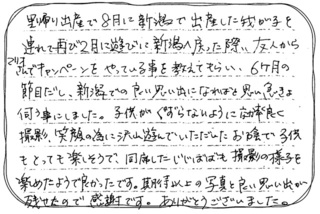 里帰り出産で8月に新潟で出産した我が子を
連れて再び2月に遊びに新潟へ戻った際、友人から
でキャンペーンをやっている事を教えてもらい、6ヶ月の
節目だし、新潟での良い思い出になればと思い
伺う事にしました。子供がぐずらないように効率良く
撮影、笑顔の為に沢山遊んでいただいたお陰で子供
もとても楽しそうで、同席したじじばばも撮影の様子を
楽めたようで良かったです。期待以上の写真と良い思い出が
残せたので感謝です。ありがとうございました。